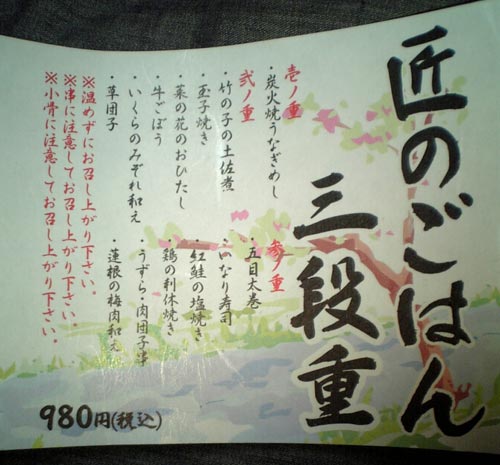 匠のごはん
三段重
壱ノ重
・炭火焼うなぎめし
弐ノ重
・竹の子の土佐煮
・玉子焼き
・菜の花のおひたし
・牛ごぼう
・いくらのみぞれ和え
・草団子
参ノ重
・五目太巻
・いなり寿司
・紅鮭の塩焼き
・鶏の利休焼き
・うずら・肉団子串
・蓮根の梅肉和え
※温めずにお召し上がり下さい。
※串に注意してお召し上がり下さい。
※小骨に注意してお召し上がり下さい。
980円(税込)